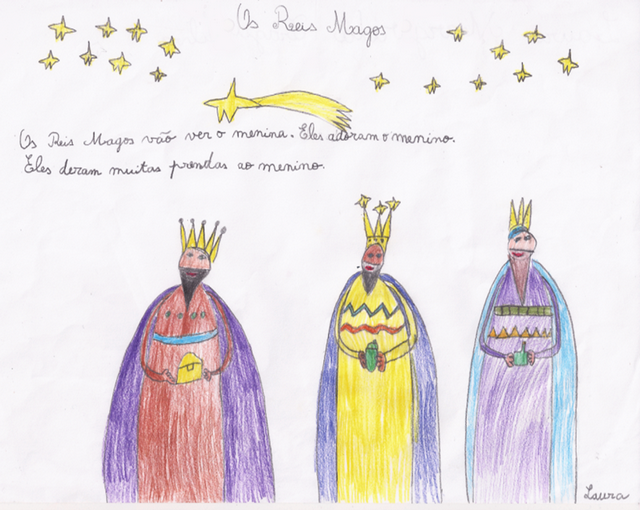 Os Reis Magos
Os Reis Magos vão ver o menina. Eles adoram o menino.
Eles deram muitas prendas ao menino.
Laura